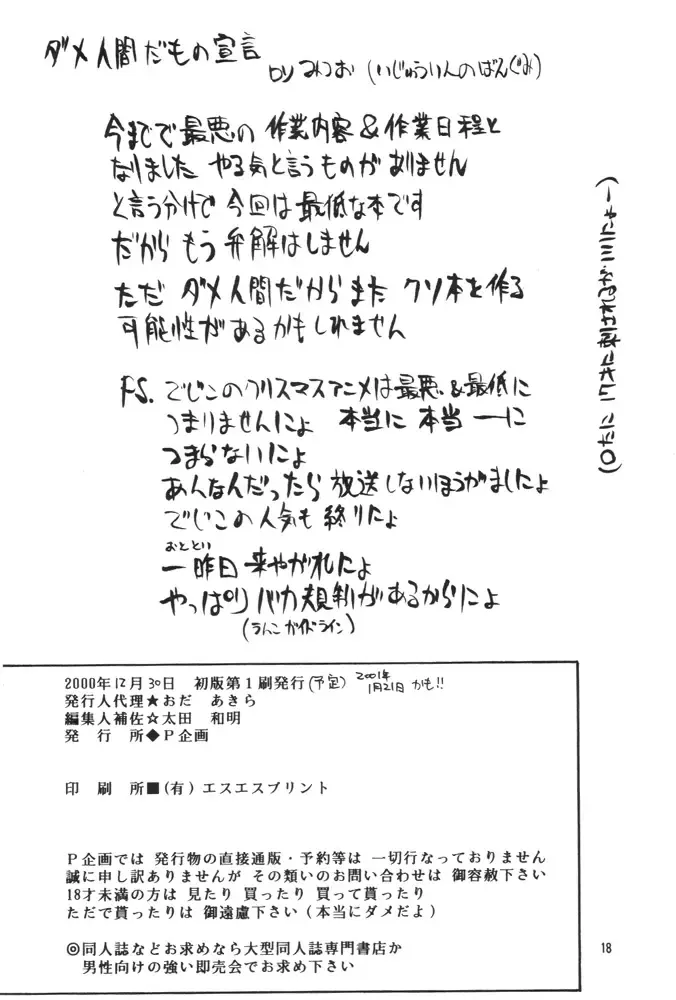 ダメ人間だもの宣言
by みつお (いじゅういんのばんぐみ)
今までで最悪の 作業内容&作業日程と
なりました やる気と言うものがありません
と言う分けで 今回は最低な本です
だから もう 弁解はしません
ただ ダメ人間だから また クソ本を作る
可能性があるかもしれません
P.S. でじこのクリスマスアニメは最悪&最低に
つまりませんにょ 本当に 本当ーに
つまらないにょ
あんなんだったら 放送しないほうがましだにょ
でじこの人気も 終りにょ
おととい
一昨日 来やがれにょ
やっぱり バカ規制があるからにょ
(うんこガイドライン)
2000年12月30日 初版第1刷発行(予定) 2001年
1月21日 かも!!
発行人代理★おだ あきら
編集人補佐☆太田 和明
発 行 所◆P企画
印 刷 所■(有) エスエスプリント
P企画では 発行物の直接通販・予約等は 一切行なっておりません
誠に申し訳ありませんが その類いのお問い合わせは 御容赦下さい
18才未満の方は 見たり 買ったり 買って貰ったり
ただで貰ったりは 御遠慮下さい (本当にダメだよ)
◎同人誌などお求めなら大型同人誌専門書店か
男性向けの強い即売会でお求め下さい
18